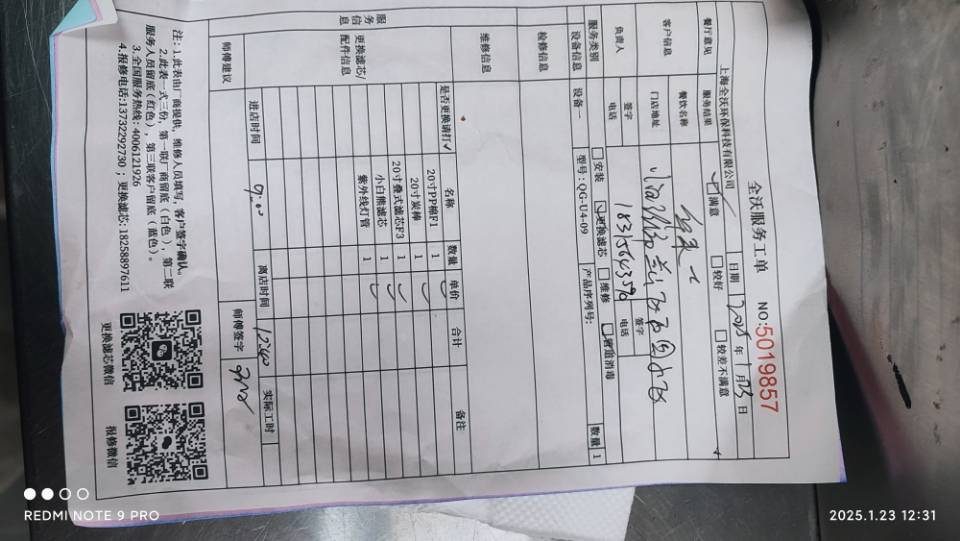 全沃服务工单
NO:5019857
上海全沃环保科技有限公司
日期 2025年1月23日
餐厅意见 服务结果 满意 较好 较差不满意
客户信息 餐饮名称
门店地址
负责人 签字 签字
电话 电话
服务类别 安装 更换滤芯 维修 管道消毒
设备信息 设备一 型号:QG-U4-09 产品序列号: 数量 1
服务信息
检修信息
维修信息
更换滤芯/配件信息 是否更换请打✓ 名称 数量 单价 合计 备注
20寸PP棉F1 1
20寸炭棒 1
20寸叠式滤芯F3 1
小白熊滤芯 1
紫外线灯管 1
师傅建议 进店时间 9:00 离店时间 12:40 实际工时
师傅签字
注:1.此表由厂商提供,维修人员填写,客户签字确认。
2.此表一式三份,第一联厂商留底(白色),第二联
服务人员留底(红色),第三联客户留底(蓝色)。
3.全国服务热线:4006121926
4.报修电话:13732292730;更换滤芯:18258897611
更换滤芯微信 报修微信
REDMI NOTE 9 PRO
2025.1.23 12:31